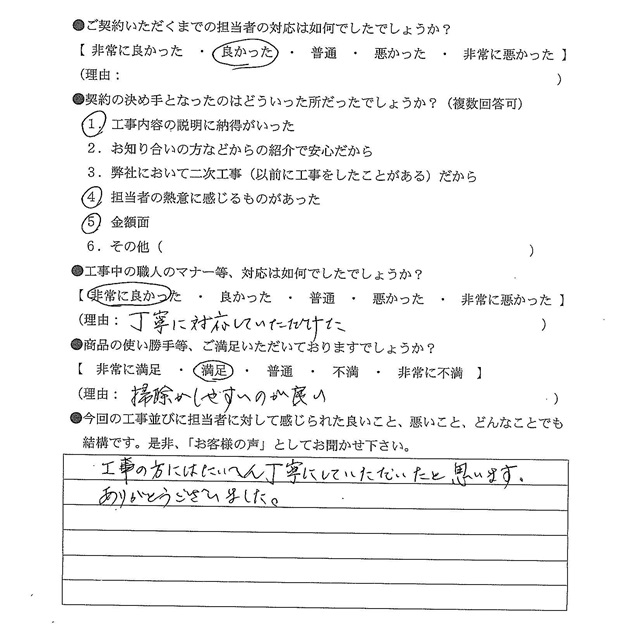 ●ご契約いただくまでの担当者の対応は如何でしたでしょうか？
【 非常に良かった ・ 良かった ・ 普通 ・ 悪かった ・ 非常に悪かった 】
（理由： ）
●契約の決め手となったのはどういった所だったでしょうか？（複数回答可）
1．工事内容の説明に納得がいった
2．お知り合いの方などからの紹介で安心だから
3．弊社において二次工事（以前に工事をしたことがある）だから
4．担当者の熱意に感じるものがあった
5．金額面
6．その他（ ）
●工事中の職人のマナー等、対応は如何でしたでしょうか？
【 非常に良かった ・ 良かった ・ 普通 ・ 悪かった ・ 非常に悪かった 】
（理由：丁寧に対応していただけた ）
●商品の使い勝手等、ご満足いただいておりますでしょうか？
【 非常に満足 ・ 満足 ・ 普通 ・ 不満 ・ 非常に不満 】
（理由：掃除がしやすいのが良い ）
●今回の工事並びに担当者に対して感じられた良いこと、悪いこと、どんなことでも
結構です。是非、「お客様の声」としてお聞かせ下さい。
工事の方にはたいへん丁寧にしていただいたと思います。
ありがとうございました。